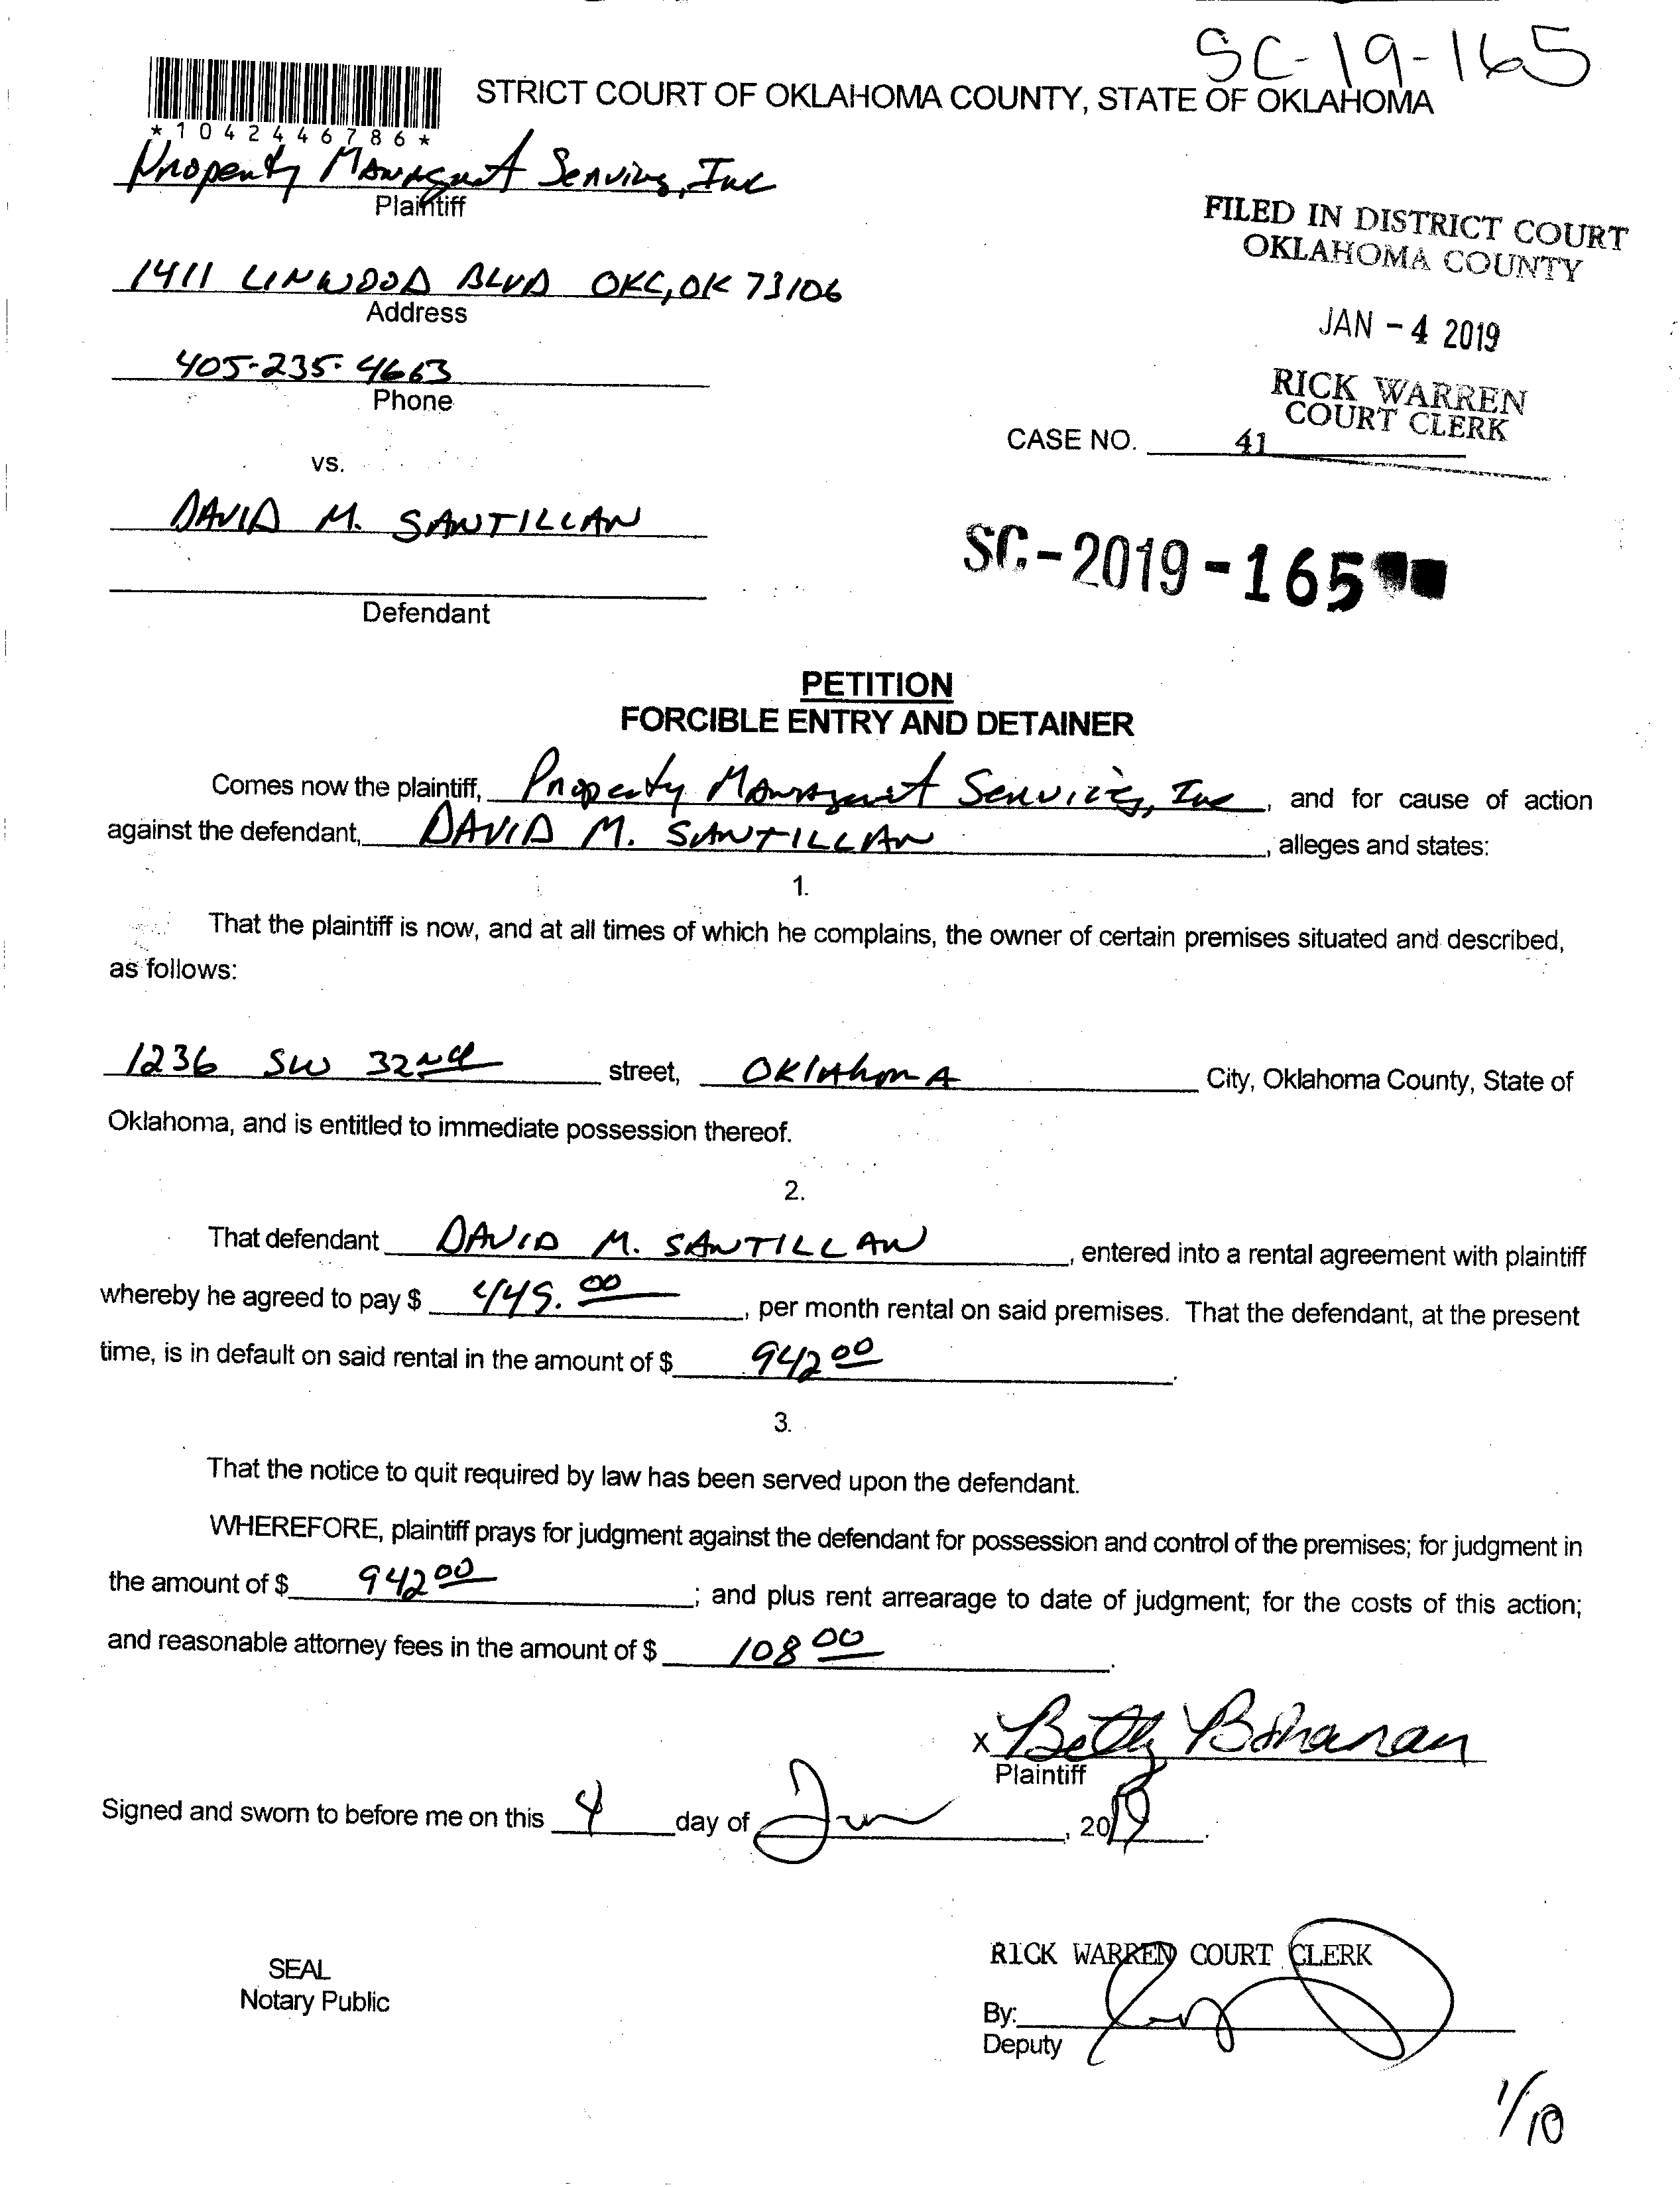 SC-19-165
STRICT COURT OF OKLAHOMA COUNTY, STATE OF OKLAHOMA
*1042446786*
Property Managment Services, Inc
Plaintiff
FILED IN DISTRICT COURT
OKLAHOMA COUNTY
1411 LINWOOD BLVD OKC, OK 73106
Address
JAN - 4 2019
405-235-4663
Phone
RICK WARREN
COURT CLERK
CASE NO. 41
vs.
DAVID M. SANTILLAN
SC-2019-165
Defendant
PETITION
FORCIBLE ENTRY AND DETAINER
Comes now the plaintiff, Property Managment Services, Inc, and for cause of action
against the defendant, DAVID M. SANTILLAN, alleges and states:
1.
That the plaintiff is now, and at all times of which he complains, the owner of certain premises situated and described,
as follows:
1236 SW 32nd street, Oklahoma City, Oklahoma County, State of
Oklahoma, and is entitled to immediate possession thereof.
2.
That defendant DAVID M. SANTILLAN, entered into a rental agreement with plaintiff
whereby he agreed to pay $ 449.00, per month rental on said premises. That the defendant, at the present
time, is in default on said rental in the amount of $ 942 00.
3.
That the notice to quit required by law has been served upon the defendant.
WHEREFORE, plaintiff prays for judgment against the defendant for possession and control of the premises; for judgment in
the amount of $ 942 00; and plus rent arrearage to date of judgment; for the costs of this action;
and reasonable attorney fees in the amount of $ 108 00.
X Betty Bohanan
Plaintiff
Signed and sworn to before me on this 4 day of Jan, 2019.
RICK WARREN COURT CLERK
SEAL
Notary Public
By:
Deputy
1/10